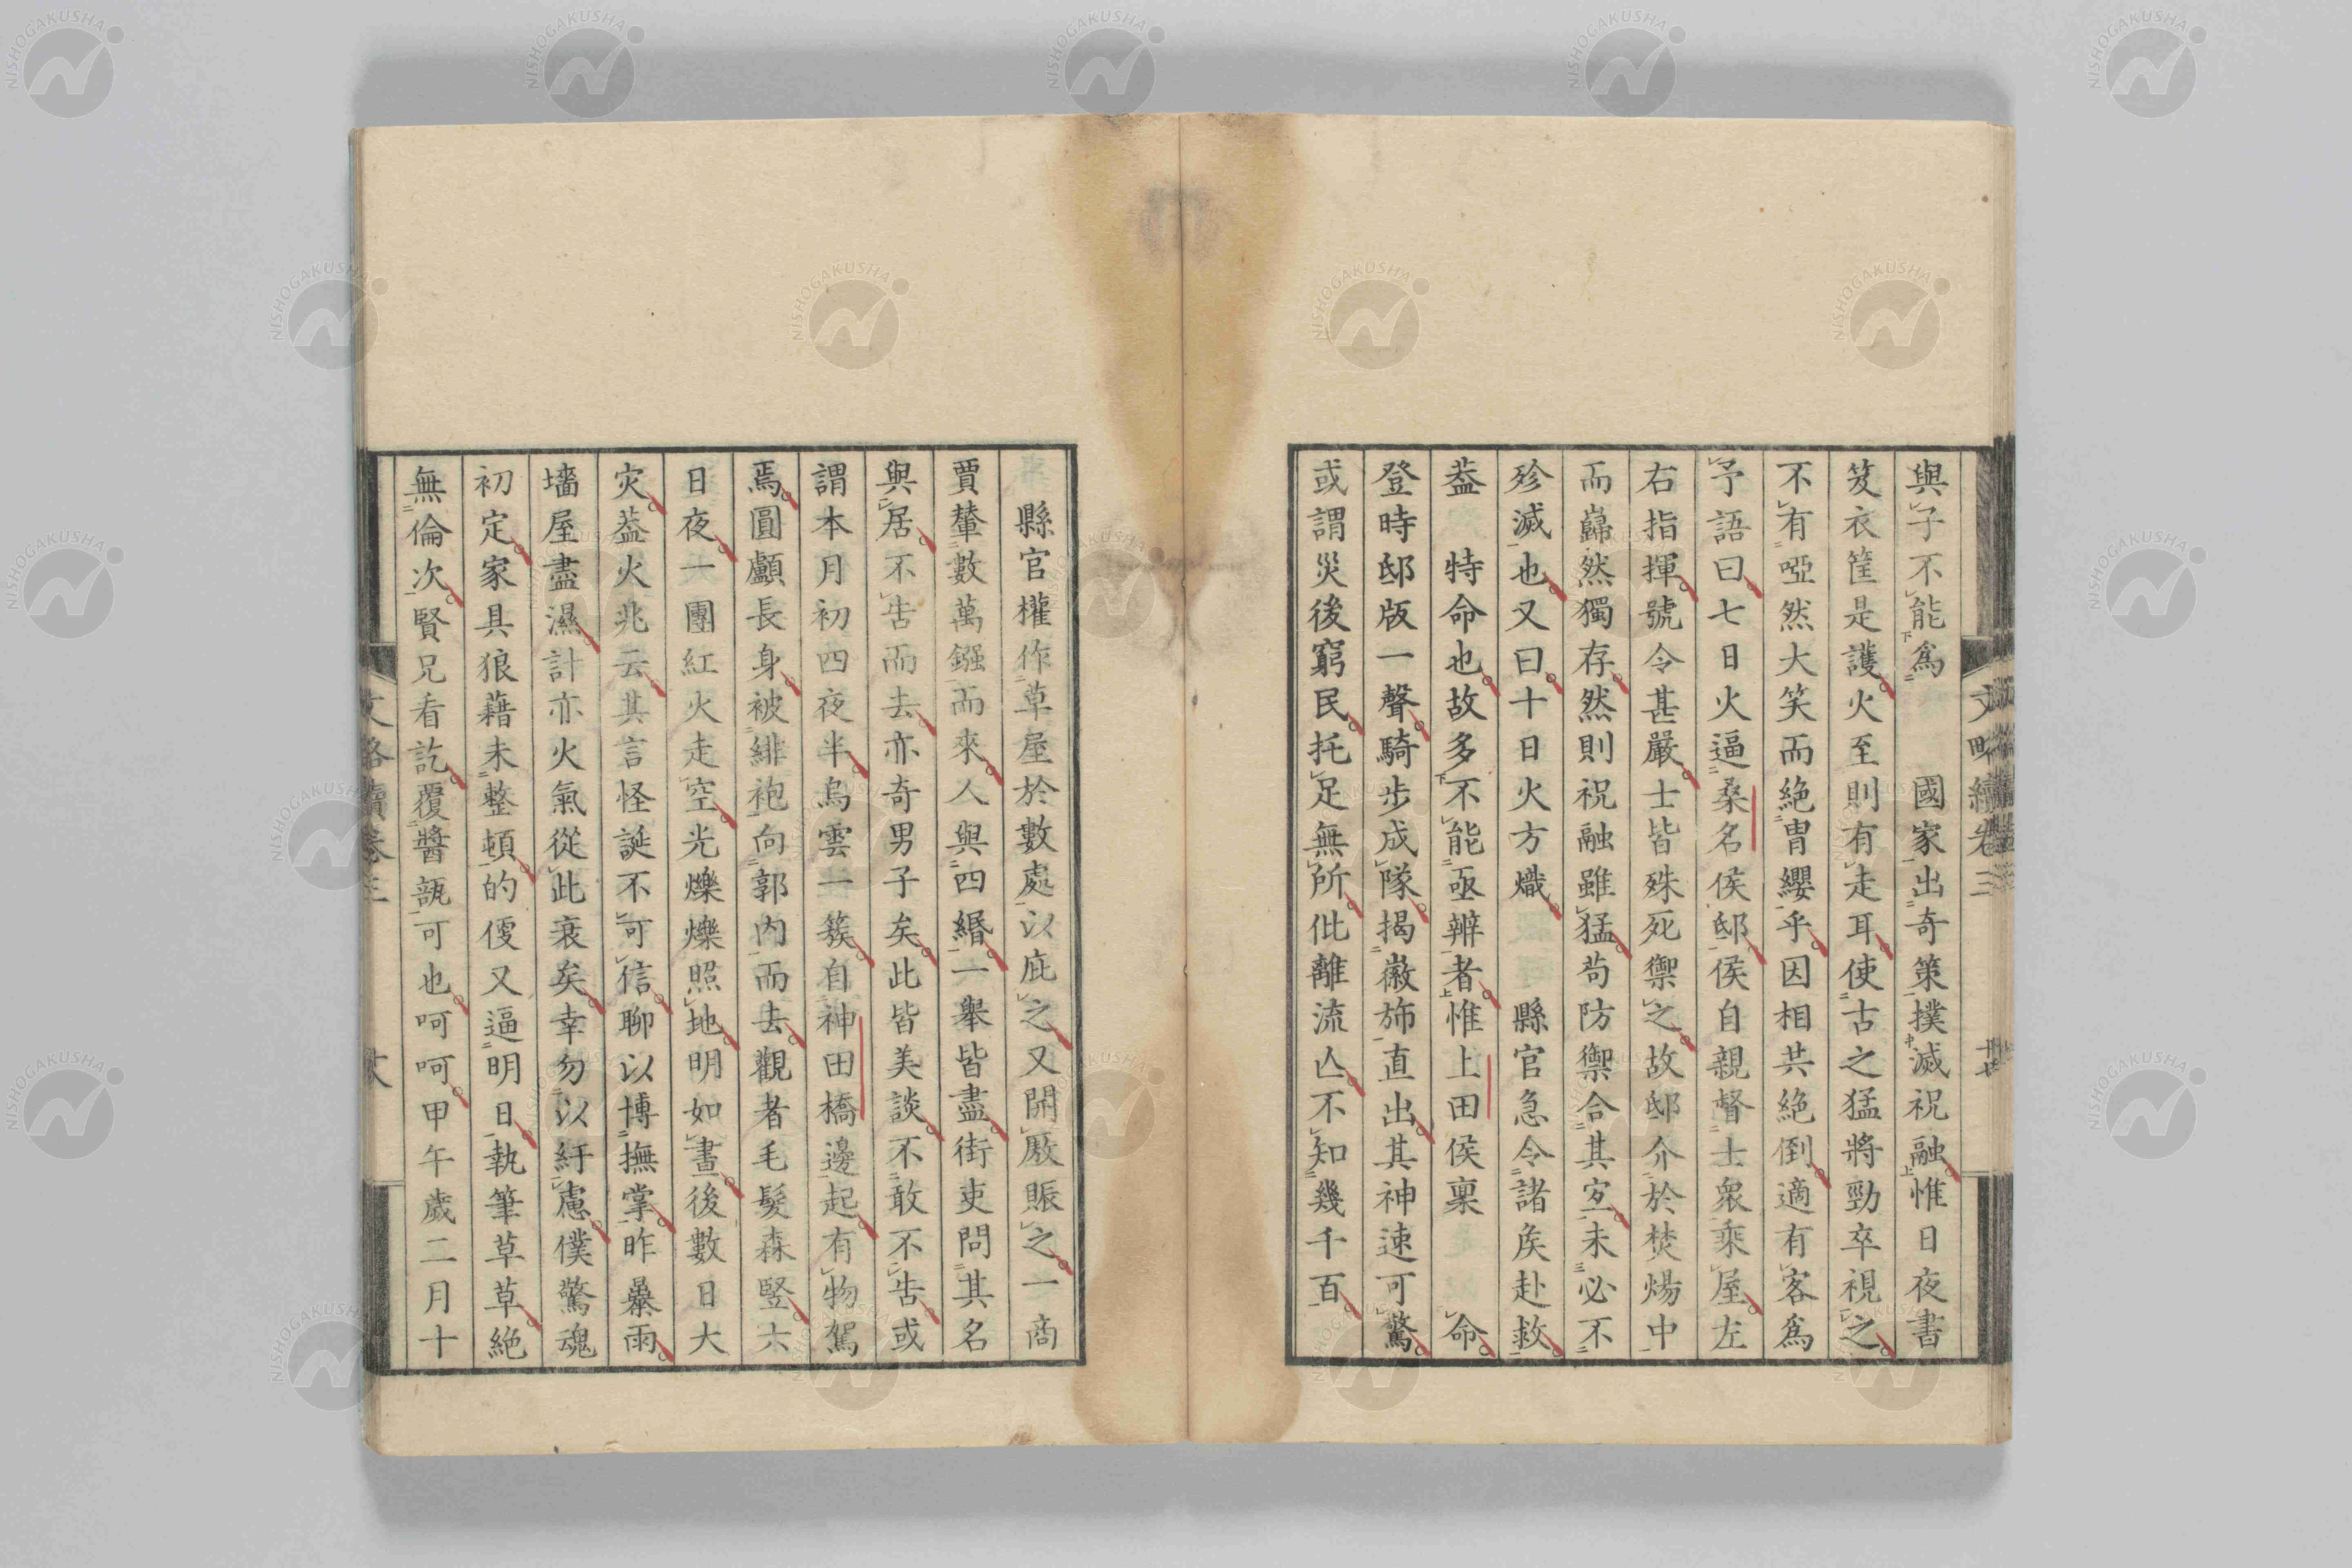 與子不能爲　國家出奇策撲滅祝融惟日夜書
笈衣筐是護火至則有走耳使古之猛將勁卒視之
不有啞然大笑而絶冑纓乎因相共絶倒適有客爲
予語曰七日火逼桑名侯邸侯自親督士衆乘屋左
右指揮號令甚嚴士皆殊死禦之故邸介於焚煬中
而巋然獨存然則祝融雖猛苟防禦合其宜未必不
殄滅也又曰十日火方熾　縣官急令諸矦赴救
葢　特命也故多不能亟辨者惟上田侯稟　命
登時邸版一聲騎步成隊揭徽斾直出其神速可驚
或謂災後窮民托足無所仳離流亾不知幾千百
縣官權作草屋於數處以庇之又開厫賑之一商
賈輦數萬鏹而來人與四緡一舉皆盡街吏問其名
與居不告而去亦奇男子矣此皆美談不敢不告或
謂本月初四夜半烏雲一簇自神田橋邊起有物駕
焉圓顱長身被緋袍向郭內而去觀者毛髮森竪六
日夜一團紅火走空光爍爍照地明如晝後數日大
灾葢火兆云其言怪誕不可信聊以博撫掌昨暴雨
墻屋盡濕計亦火氣從此衰矣幸勿以紆慮僕驚魂
初定家具狼藉未整頓的便又逼明日執筆草草絶
無倫次賢兄看訖覆醬瓿可也呵呵甲午歲二月十
文略續卷三
NISHOGAKUSHA